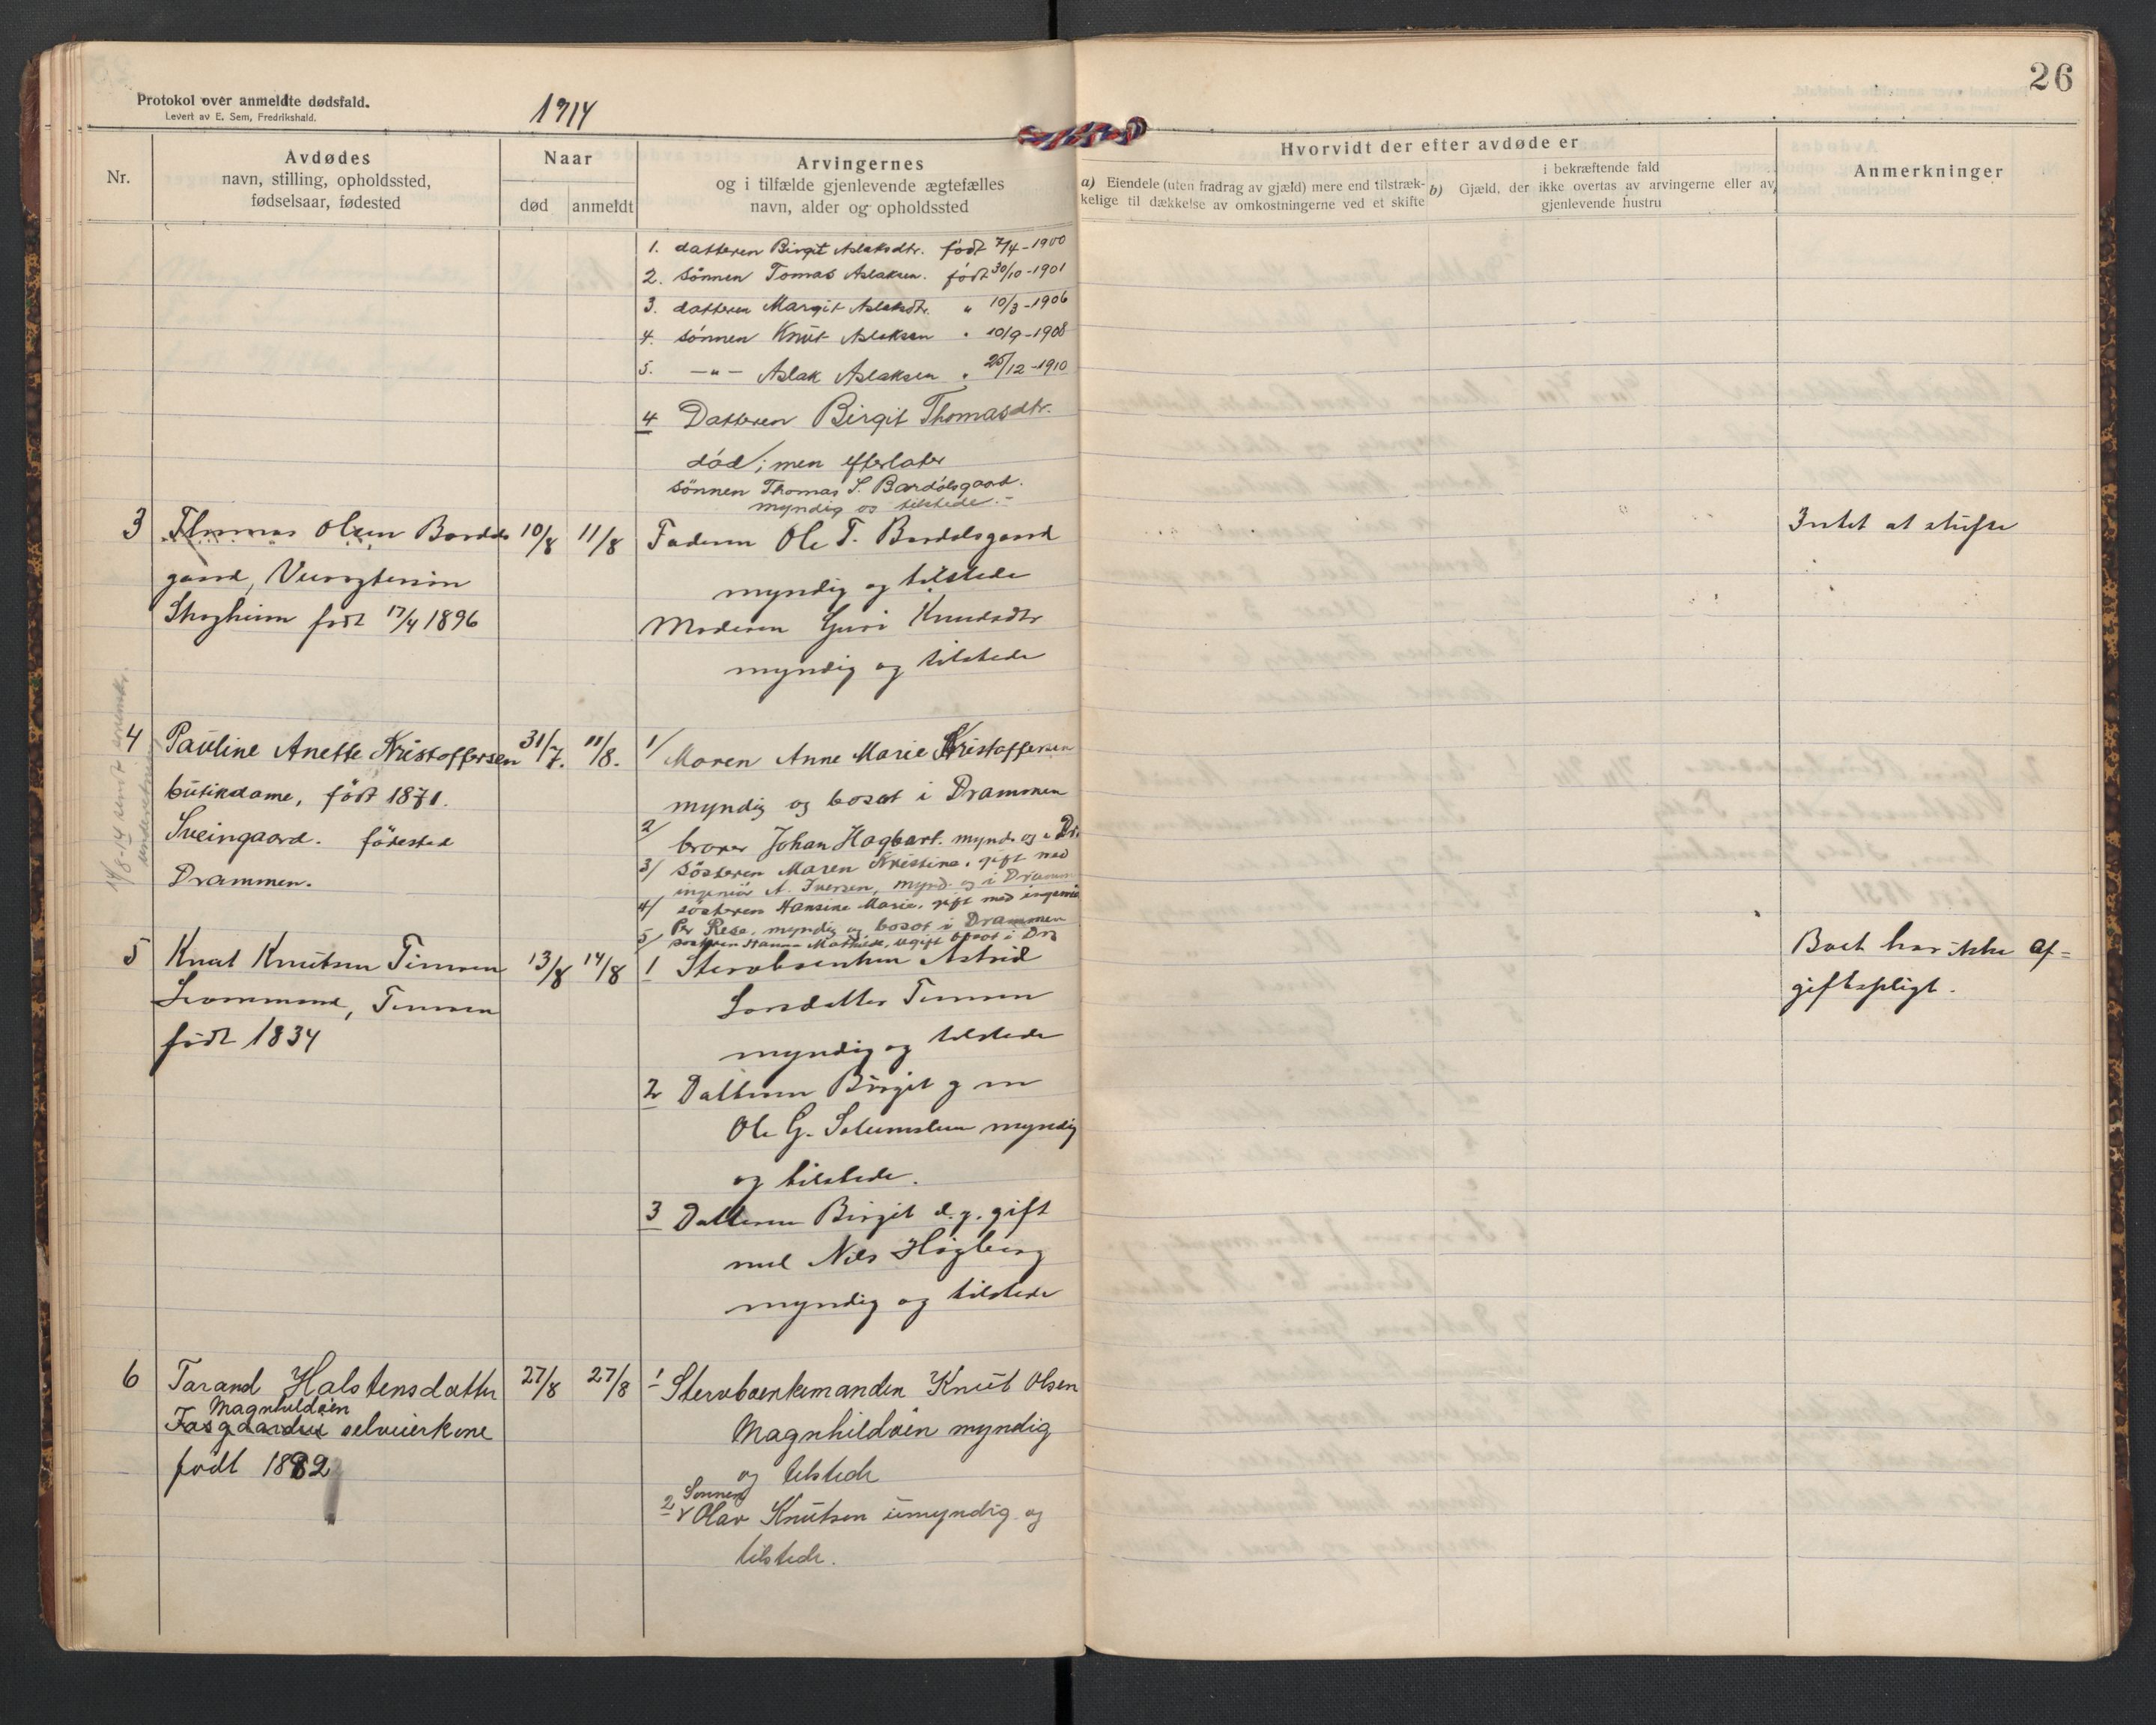 Protokol over anmeldte dødsfald.
Levert av E. Sem, Fredrikshald.
1914
26
Nr.
Avdødes
navn, stilling, opholdssted,
fødselsaar, fødested
Naar
død
anmeldt
Arvingernes
og i tilfælde gjenlevende ægtefælles
navn, alder og opholdssted
Hvorvidt der efter avdøde er
a) Eiendele (uten fradrag av gjæld) mere end tilstræk-
kelige til dækkelse av omkostningerne ved et skifte
i bekræftende fald
b) Gjæld, der ikke overtas av arvingerne eller av
gjenlevende hustru
Anmerkninger
1. datteren Birgit Aslaksdtr. født 7/4-1900
2. sønnen Tomas Aslaksen. født 30/10-1901
3. datteren Margit Aslaksdtr. " 10/3-1906
4. sønnen Knut Aslaksen " 10/9-1908
5. -"- Aslak Aslaksen " 25/12-1910
4 Datteren Birgit Thomasdtr.
død; men efterlater
sønnen Thomas S. Bardølsgaard.
myndig og tilstede.-
3 Thomas Olsen Bardøls
gaard,
født 17/4 1896
10/8 11/8
Faderen Ole T. Bardølsgaard
myndig og tilstede
Moderen Guri Knudsdtr
myndig og tilstede
Intet at skifte
14/8-14 sendt
underretning
4 Pauline Anette Kristoffersen
butikdame, født 1871.
Sveingaard. fødested
Drammen.
31/7. 11/8.
1/ Maren Anne Marie Kristoffersen
myndig og bosat i Drammen
2/ broren Johan Hagbart. mynd. og i Dr.
3/ søsteren Maren Kristine, gift med
ingeniør A. Iversen, mynd. og i Dramm
4/ søsteren Hansine Marie, gift med ingeniør
Per Rese, myndig og bosat i Drammen
5/ søsteren Hanna Mathilde, ugift bosat i Dr
5 Knut Knutsen
født 1834
13/8 14/8
1 Stervboenken Astrid
Larsdatter
myndig og tilstede
2 Datteren Birgit g m
Ole G. myndig
og tilstede.
3 Datteren Birgit d.y. gift
med Nils Høgberg
myndig og tilstede
Boet har ikke af=
giftspligt.
6 Tarand Halstensdatter
Magnhildøen
selveierkone
født 1882
27/8 27/8
1 Stervboenkemanden Knut Olsen
Magnhildøen myndig
og tilstede
2 Sønnen
Olav Knutsen umyndig og
tilstede.